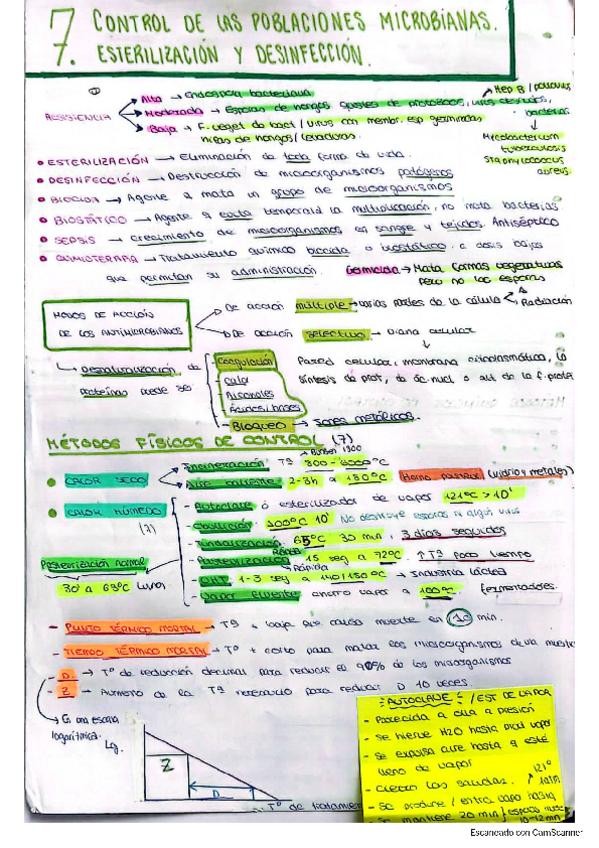 7. CONTROL DE LAS POBLACIONES MICROBIANAS.
ESTERILIZACIÓN Y DESINFECCIÓN.
RESISTENCIA
Alta → Endospora bacteriana
Hep B /
Moderada → Esporas de hongos, quistes de protozoos, virus desnudos,
bacterias
Baja → F. veget de bact / virus con membr. esp germinadas
hifas de hongos / levaduras
Mycobacterium
tuberculosis
Staphylococcus
aureus
• ESTERILIZACIÓN → Eliminación de toda forma de vida.
• DESINFECCIÓN → Destrucción de microorganismos patógenos
• BIOCIDA → Agente q mata un grupo de microorganismos
• BIOSTÁTICO → Agente q evita temporald la multiplicación, no mata bacterias.
• SEPSIS → crecimiento de microorganismos en sangre y tejidos. Antiséptico
• QUIMIOTERAPIA → Tratamiento químico biocida o biostático a dosis bajas
que permitan su administración.
Germicida → Mata formas vegetativas
pero no las esporas
MODOS DE ACCIÓN
DE LOS ANTIMICROBIANOS
De acción múltiple → varias partes de la célula
Radiación
De acción selectiva → Diana celular
Pared celular, membrana citoplasmática, la
síntesis de prot, de ác. nucl o alt de la f. prote
Desnaturalización de
proteínas puede ser
- Coagulación
- Calor
- Alcoholes
- Ácidos/bases
- Bloqueo → Iones metálicos.
MÉTODOS FÍSICOS DE CONTROL (7)
Bunsen 1300
• CALOR SECO
Incineración Tª 800 - 6000ºC
Aire caliente 2-3h a 180ºC Horno pasteur (vidrio y metales)
• CALOR HÚMEDO
- Autoclave ó esterilizador de vapor 121ºC > 10'
- Ebullición 100ºC 10' No destruye esporas ni algún virus
- Tindalización 65ºC 30 min. 3 días seguidos
Rápida
- Pasteurización 15 seg a 72ºC. ↑Tª poco tiempo
Rápida
- UHT 1-3 seg a 140/150ºC → Industria láctea
- Vapor fluente chorro vapor a 100ºC. fermentadores.
Pasterización normal
30' a 63ºC
- PUNTO TÉRMICO MORTAL → Tª + baja que causa muerte en 10 min.
- TIEMPO TÉRMICO MORTAL → Tº + corto para matar los microorganismos de una muestra
- D → Tº de reducción decimal para reducir el 90% de los microorganismos
- Z → Aumento de la Tª necesario para reducir D 10 veces.
En una escala
logarítmica.
Log.
Z
D
Tº de tratamiento
AUTOCLAVE / EST DE VAPOR
- Parecida a olla a presión
- Se hierve H2O hasta prod vapor
- Se expulsa aire hasta q esté
lleno de vapor
- Cierro las salidas.
121º
1 atm
- Se produce / entra vapor hasta
- Se mantiene 20 min / esporas
10-12 min
Escaneado con CamScanner